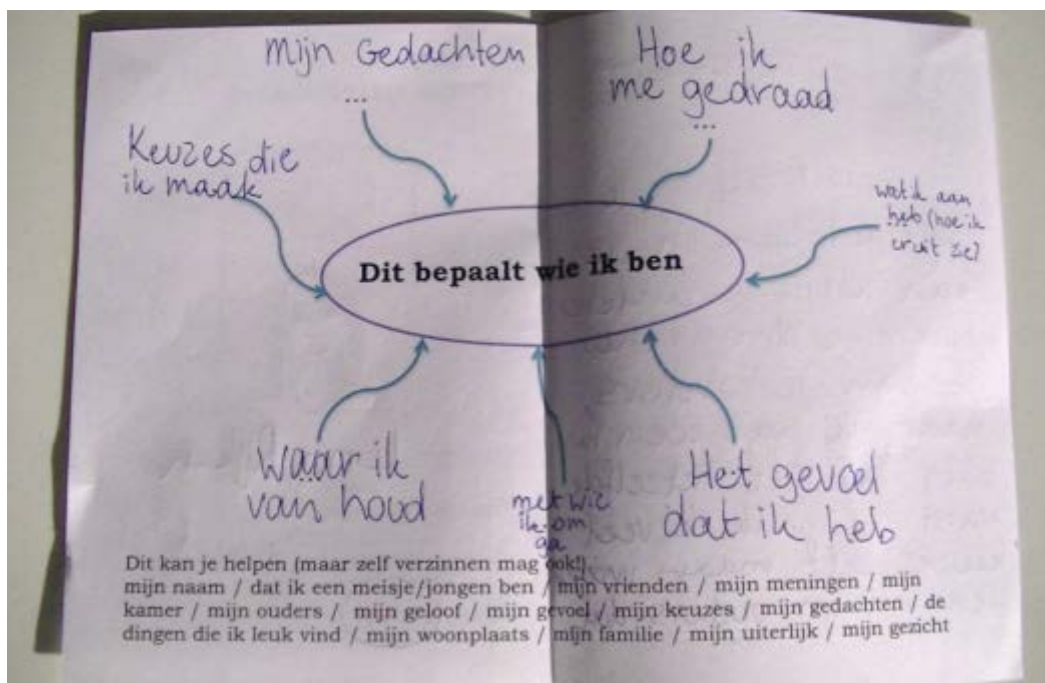 Mijn Gedachten
...
Hoe ik
me gedraad
...
Keuzes die
ik maak
wat ik aan
heb (hoe ik
eruit zie)
Dit bepaalt wie ik ben
Waar ik
van houd
met wie
ik om
ga
Het gevoel
dat ik heb
Dit kan je helpen (maar zelf verzinnen mag ook!)
mijn naam / dat ik een meisje/jongen ben / mijn vrienden / mijn meningen / mijn
kamer / mijn ouders / mijn geloof / mijn gevoel / mijn keuzes / mijn gedachten / de
dingen die ik leuk vind / mijn woonplaats / mijn familie / mijn uiterlijk / mijn gezicht